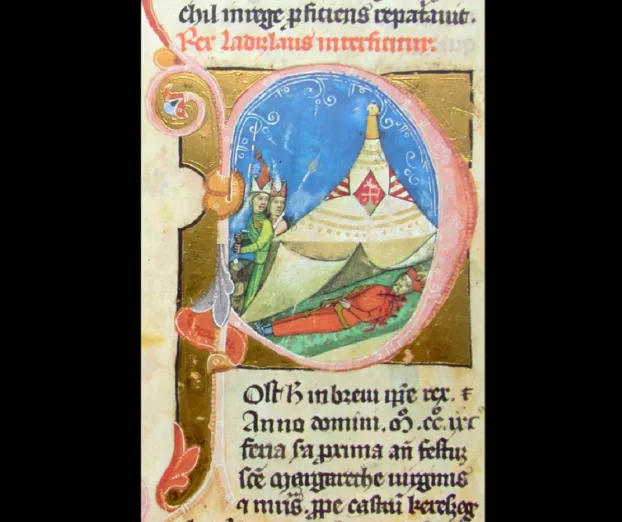 chil in rege ꝑficiens repatauit.
Rex Ladizlaus interficitur.
Post h̄ in breui ip̄e rex. ⁊
Anno domini. m̊. cc̊. ixc
feria s̄a proxima an̄ festuꝫ
sc̄e Margarethe uirginis
⁊ mr̄is. ꝓpe castrū kereszeg